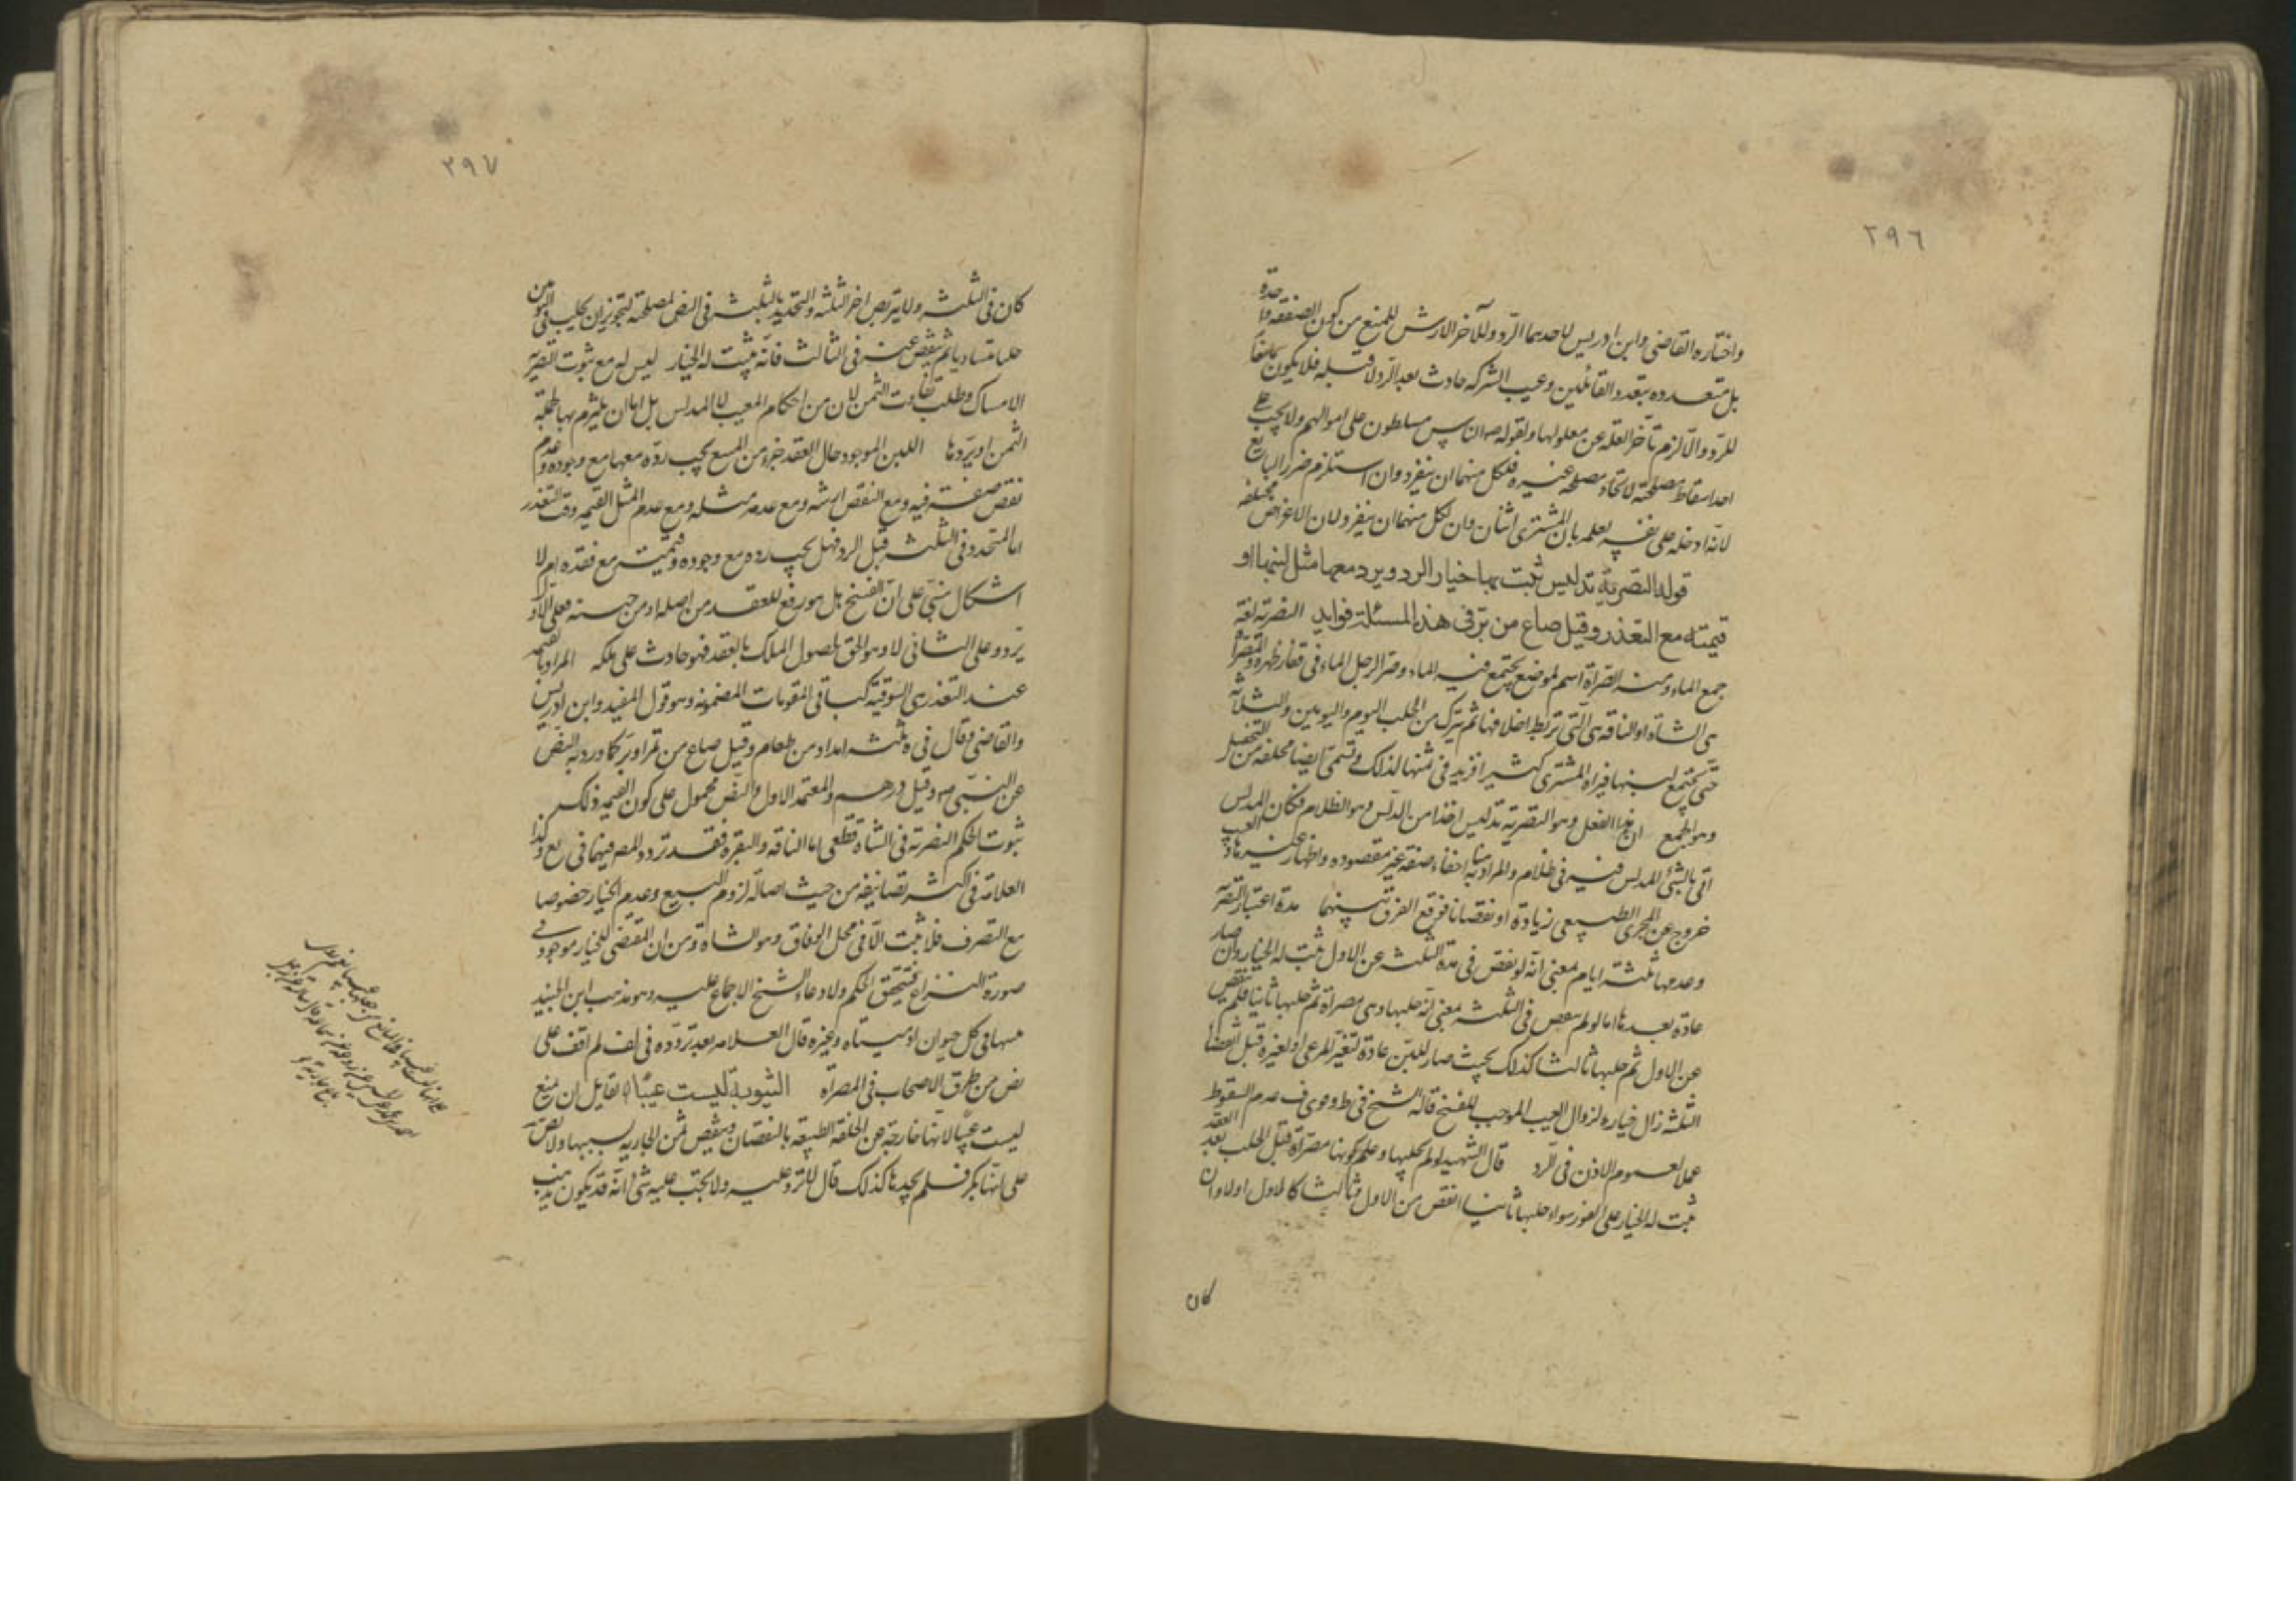 ٢٩٦
واختاره القاضى وابن ادريس لاحدهما الرد وللآخر الارش للمنع من كون الصفقة واحدة
بل متعدده بتعدد القائلين وعيب الشركه حادث بعد الرد لا قبله فلا يكون مانعا
للرد والا لزم تأخر العلة عن معلولها ولقوله ص الناس مسلطون على اموالهم ولا يجب على
احد اسقاط مصلحته لاتحاد مصلحه غيره فلكل منهما ان ينفرد وان استلزم ضرر البايع
لانه ادخله على نفسه بعلمه بان المشترى اثنان وان لكل منهما ان ينفرد لان الاغراض مختلفه
قوله التصرية تدليس ثبت بها خيار الرد ويرد معها مثل لبنها او
قيمته مع التعذر وقيل صاع من بر فى هذه المسئلة فوايد التصرية لغة
جمع الماء ومنه الصراة اسم لموضع يجتمع فيه الماء وصر الرجل الماء فى فقار ظهره والمصراة
هى الشاة او الناقه هى التى تربط اخلافها ثم يترك من الحلب اليوم واليومين والثلاثة
حتى يجتمع لبنها فيراه المشترى كثيرا فزيد فى ثمنها لذلك وتسمى ايضا محفلة من التحفيل
وهو الجمع ان هذا الفعل وهو التصرية تدليس اخذا من الدلس وهو الظلام فكان المدلس
اتى بالشئ المدلس فيه فى ظلام والمراد به هنا اخفاء صفة غير مقصوده واظهار غيره هاو العيب
خروج عن المجرى الطبيعى زيادة او نقصانا فوقع الفرق بينهما مدة اعتبار التصرية
وعدمها ثلثة ايام بمعنى انه لو نقص فى مدة الثلثة عن الاول ثبت له الخيار وان صار
عادة بعدها اما لو لم ينقص فى الثلثة بمعنى انه حلبها وهى مصراة ثم حلبها ثانيا فلم ينقص
عن الاول ثم حلبها ثالثا كذلك بحيث صار اللبن عادة لتغير المرعى او لغيره قبل انقضاء
الثلثة زال خياره لزوال العيب الموجب للفسخ قاله الشيخ فى ط وقوى ف عدم السقوط
عملا لعموم الاذن فى الرد قال الشهيد لو لم يحلبها وعلم بكونها مصراة قبل الحلب بعد العقد
ثبت له الخيار على الفور سواء حلبها ثانيا انقص من الاول وثالثا كالاول اولا وان
كان
٢٩٧
كان فى الثلثة ولا يتربص اخر الثلثة والتحديد بالثلثة فى النص لمصلحة لتجويز ان يحلب فى اليومين
حلبا متساويا ثم ينقص عنه فى الثالث فانه يثبت له الخيار ليس له مع ثبوت التصرية
الامساك وطلب تفاوت الثمن لان من احكام المعيب لا المدلس بل اما ان يلتزم بها بجملة
الثمن او يردها اللبن الموجود حال العقد جزء من المبيع يجب رده معها مع وجوده وعدم
نقص صفة فيه ومع النقص ارشه ومع عدمه مثله ومع عدم المثل القيمه وقت التعذر
اما المتجدد فى الثلثة قبل الرد فهل يجب رده مع وجوده وقيمته مع فقده ام لا
اشكال مبنى على ان الفسخ هل هو رفع للعقد من اصله او من حينه فعلى الاول
يرد وعلى الثانى لا وهو الحق لحصول الملك بالعقد فهو حادث على ملكه المراد بالقيمة
عند التعذر هى السوقية كباقى المقومات المضمونه وهو قول المفيد وابن ادريس
والقاضى وقال فى ه ثلثة امداد من طعام وقيل صاع من تمر او بر كما ورد به النص
عن النبى ص وقيل درهم والمعتمد الاول والنص محمول على كون القيمه ذلك
ثبوت الحكم التصرية فى الشاة قطعى اما الناقه والبقره فقد تردد المص فيهما فى يع وكذا
العلامة فى اكثر تصانيفه من حيث اصالة لزوم البيع وعدم الخيار خصوصا
مع التصرف فلا يثبت الا فى محل الوفاق وهو الشاة ومن ان المقتضى للخيار موجود فى
صورة النزاع فيتحقق الحكم ولادعاء الشيخ الاجماع عليه وهو مذهب ابن الجنيد
منها فى كل حيوان ادميتا وغيره قال العلامه بعد تردده فى لف لم اقف على
نص من طرق الاصحاب فى المصراة الثيوبة ليست عيبا لقايل ان يمنع
ليست عيبا لانها خارجة عن الخلقه الطبيعيه بالنقصان وينقص ثمن الجاريه بسببها ولانص
على انها بكر فلم يجدها كذلك قال لا ترد عليه ولا يجب عليه شئ انه قد يكون يذهب